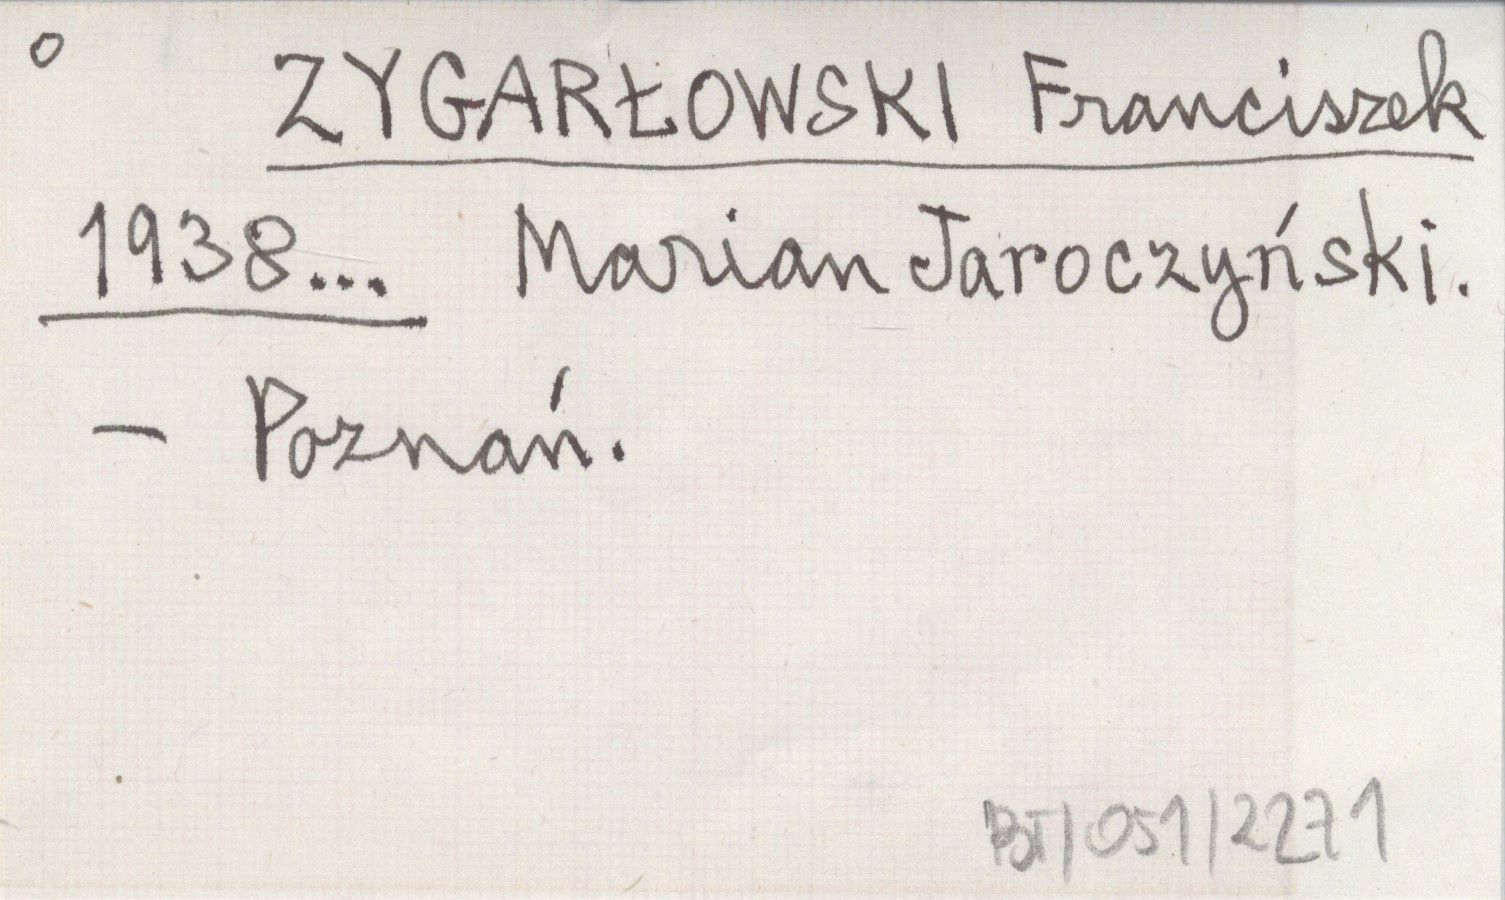 o ZYGARŁOWSKI Franciszek
1938... Marian Jaroczyński.
– Poznań.
BJ/051/2271